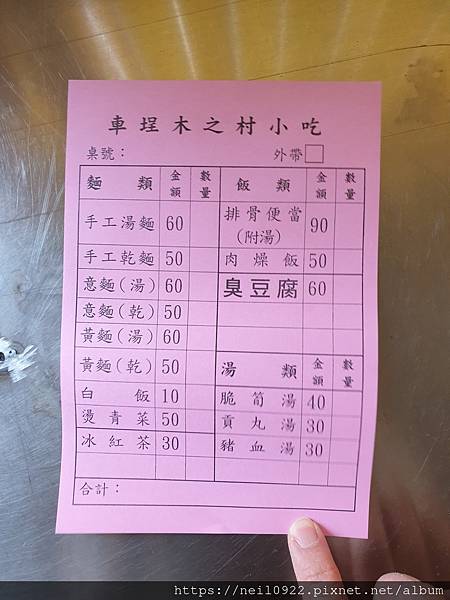 車埕木之村小吃
桌號：　外帶□
麵類 金額 數量
手工湯麵 60
手工乾麵 50
意麵(湯) 60
意麵(乾) 50
黃麵(湯) 60
黃麵(乾) 50
白飯 10
燙青菜 50
冰紅茶 30
飯類 金額 數量
排骨便當 90
(附湯)
肉燥飯 50
臭豆腐 60
湯類 金額 數量
脆筍湯 40
貢丸湯 30
豬血湯 30
合計：
https://neil0922.pixnet.net/album